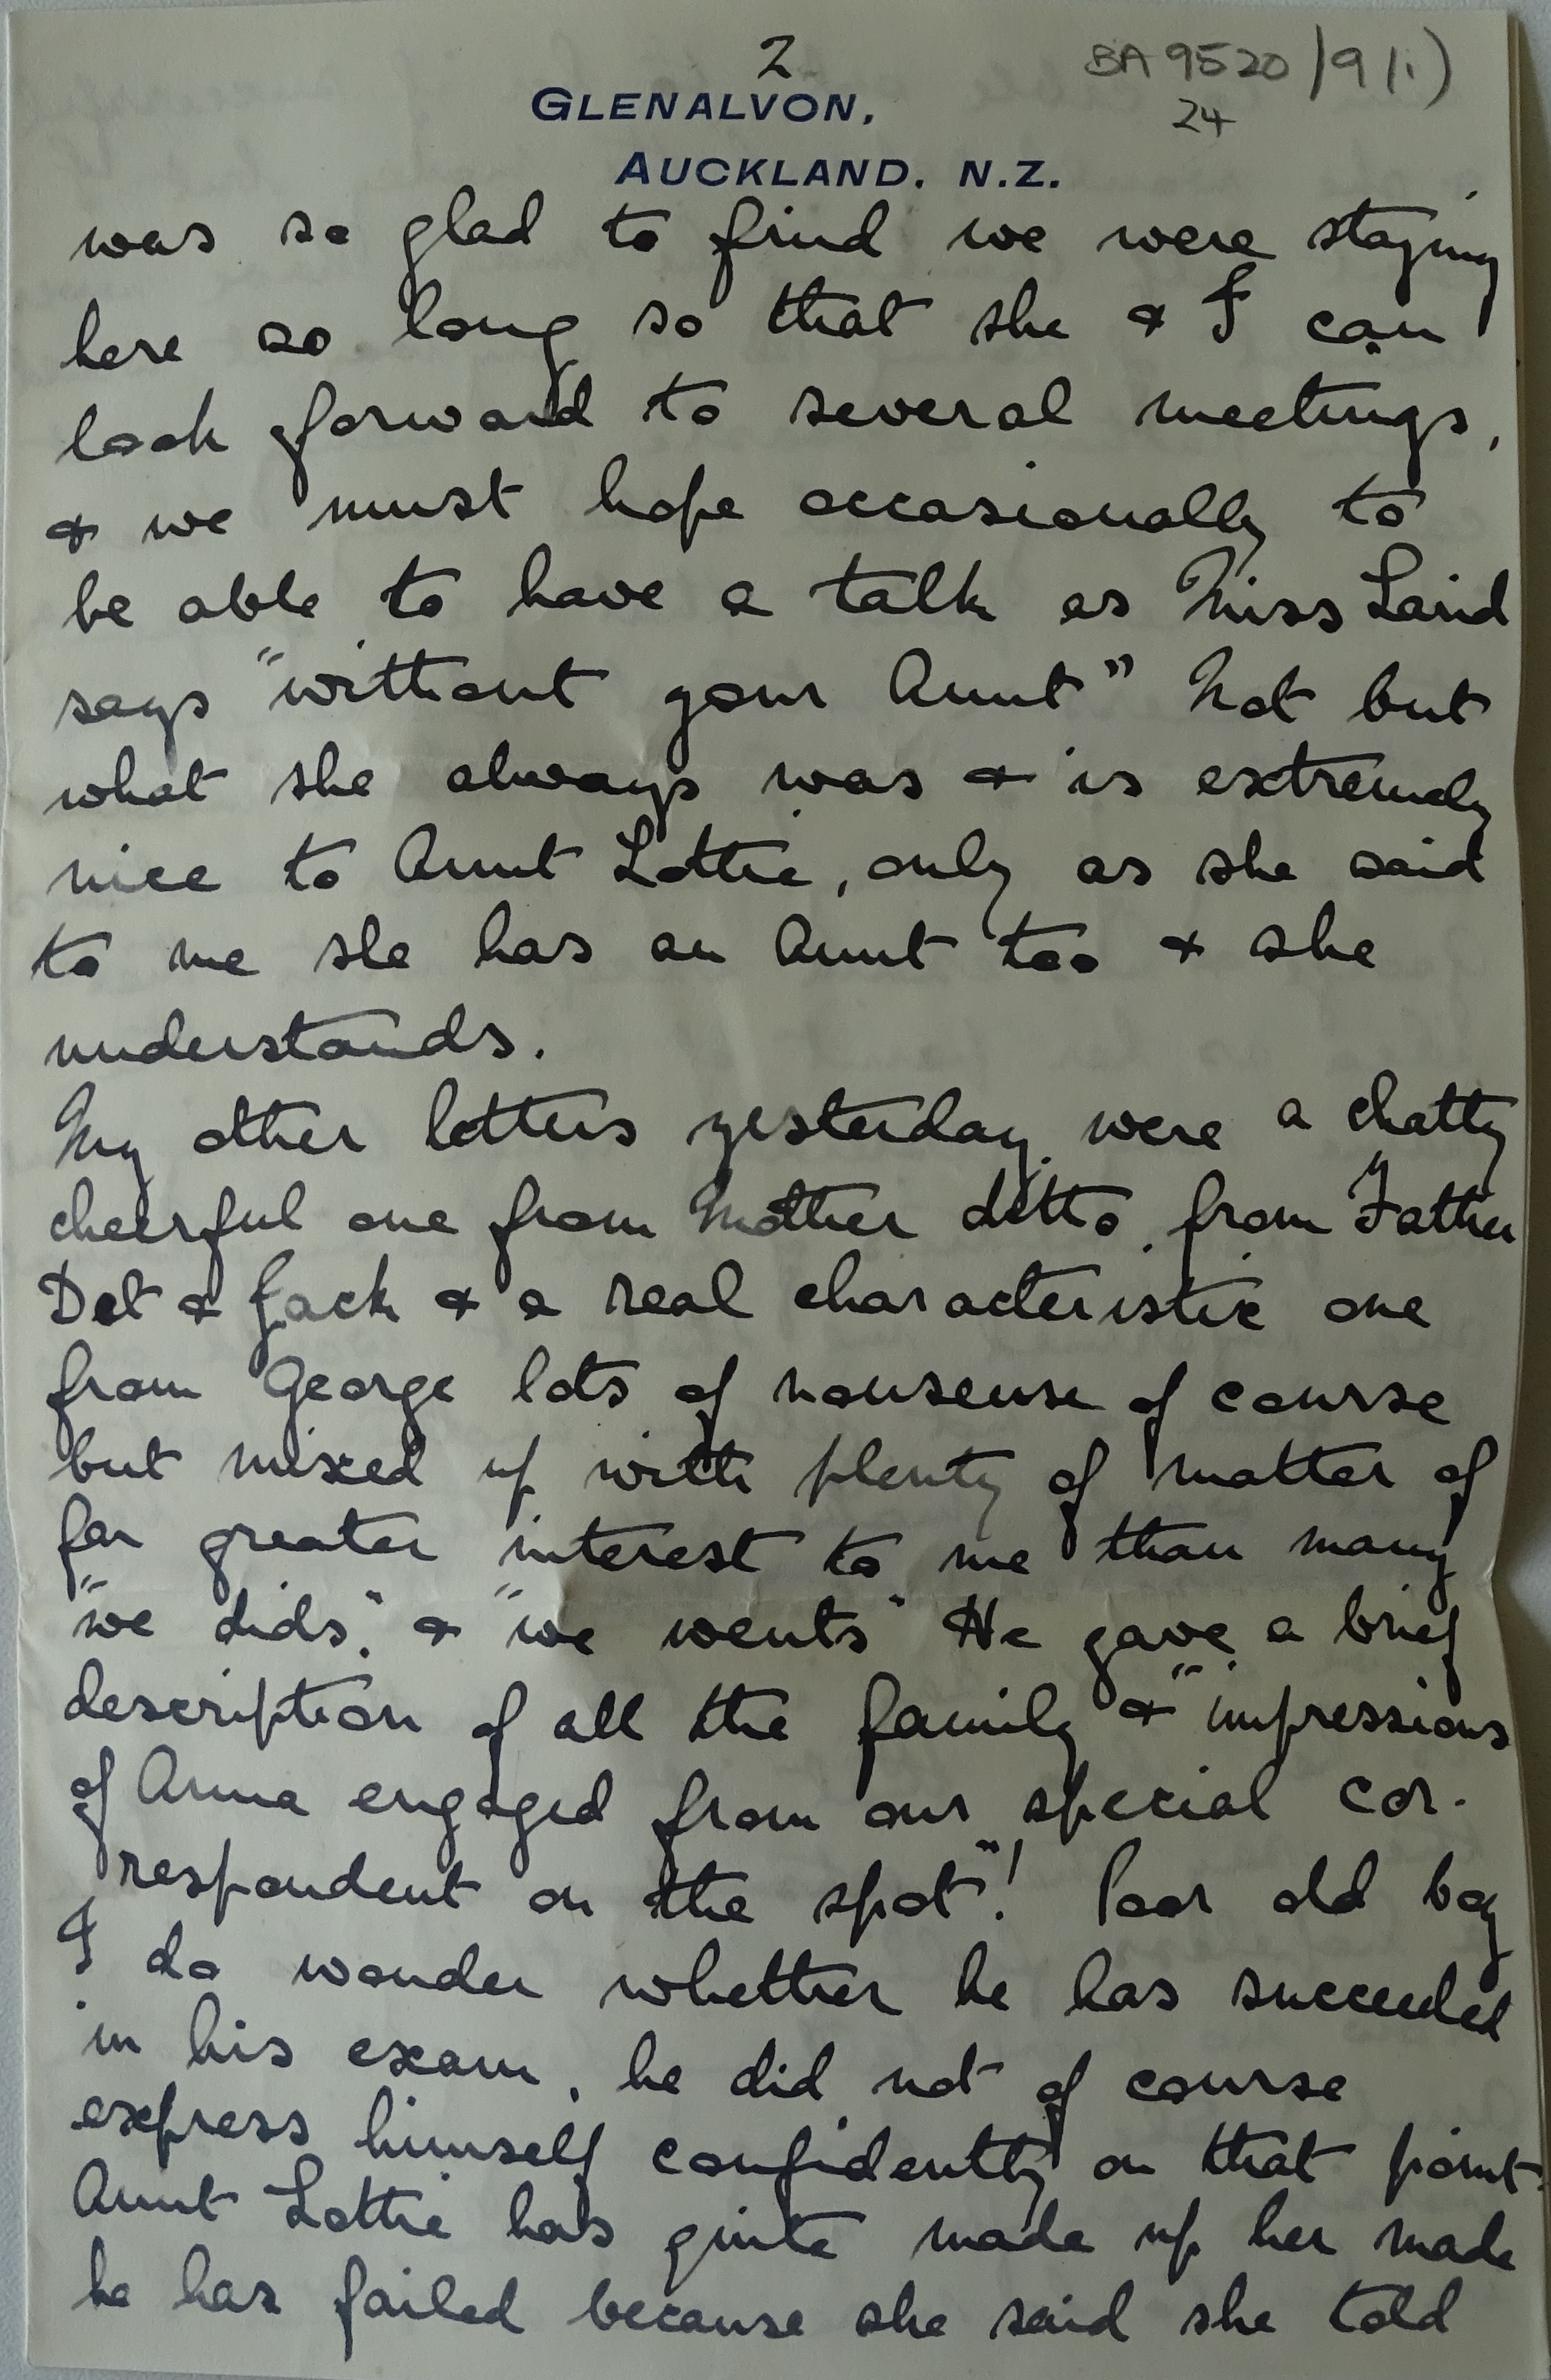 2
BA 9520/9/1)
24
GLENALVON,
AUCKLAND. N.Z.
was so glad to find we were staying
here so long so that she & I can
look forward to several meetings,
& we must hope occasionally to
be able to have a talk as Miss Laird
says "without your Aunt" Not but
what she always was & is extremely
nice to Aunt Lottie, only as she said
to me she has an Aunt too & she
understands.
My other letters yesterday were a chatty
cheerful one from Mother ditto from Father
Det & Jack & a real characteristic one
from George lots of nonsense of course
but mixed up with plenty of matter of
far greater interest to me than many
"we dids" & "we wents" He gave a brief
description of all the family & "impressions
of Anna engaged from our special cor-
respondent on the spot"! Poor old boy
I do wonder whether he has succeeded
in his exam, he did not of course
express himself confidently on that point.
Aunt Lottie has quite made up her made
he has failed because she said she told